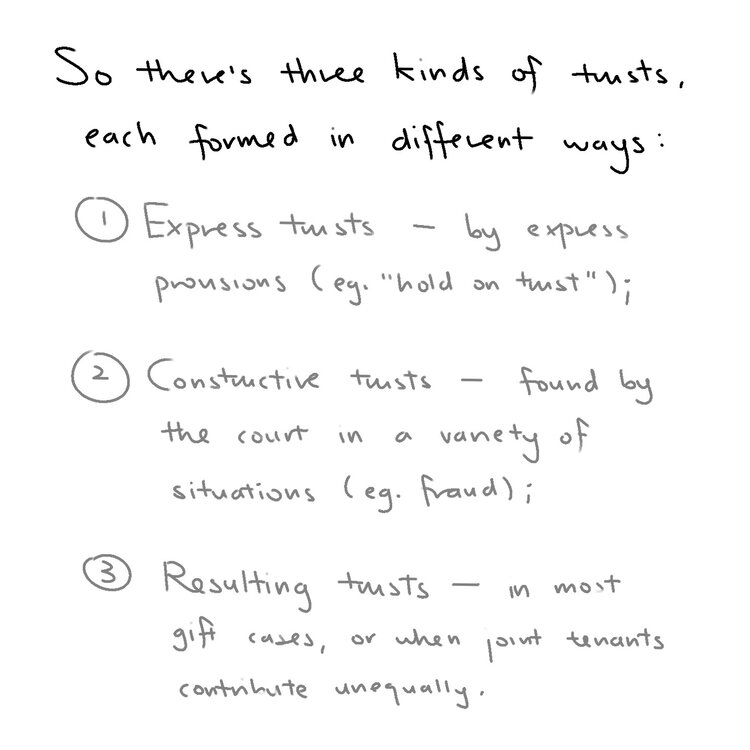 So there's three kinds of trusts,
each formed in different ways:
① Express trusts — by express
provisions (eg. "hold on trust");
② Constructive trusts — found by
the court in a variety of
situations (eg. fraud);
③ Resulting trusts — in most
gift cases, or when joint tenants
contribute unequally.